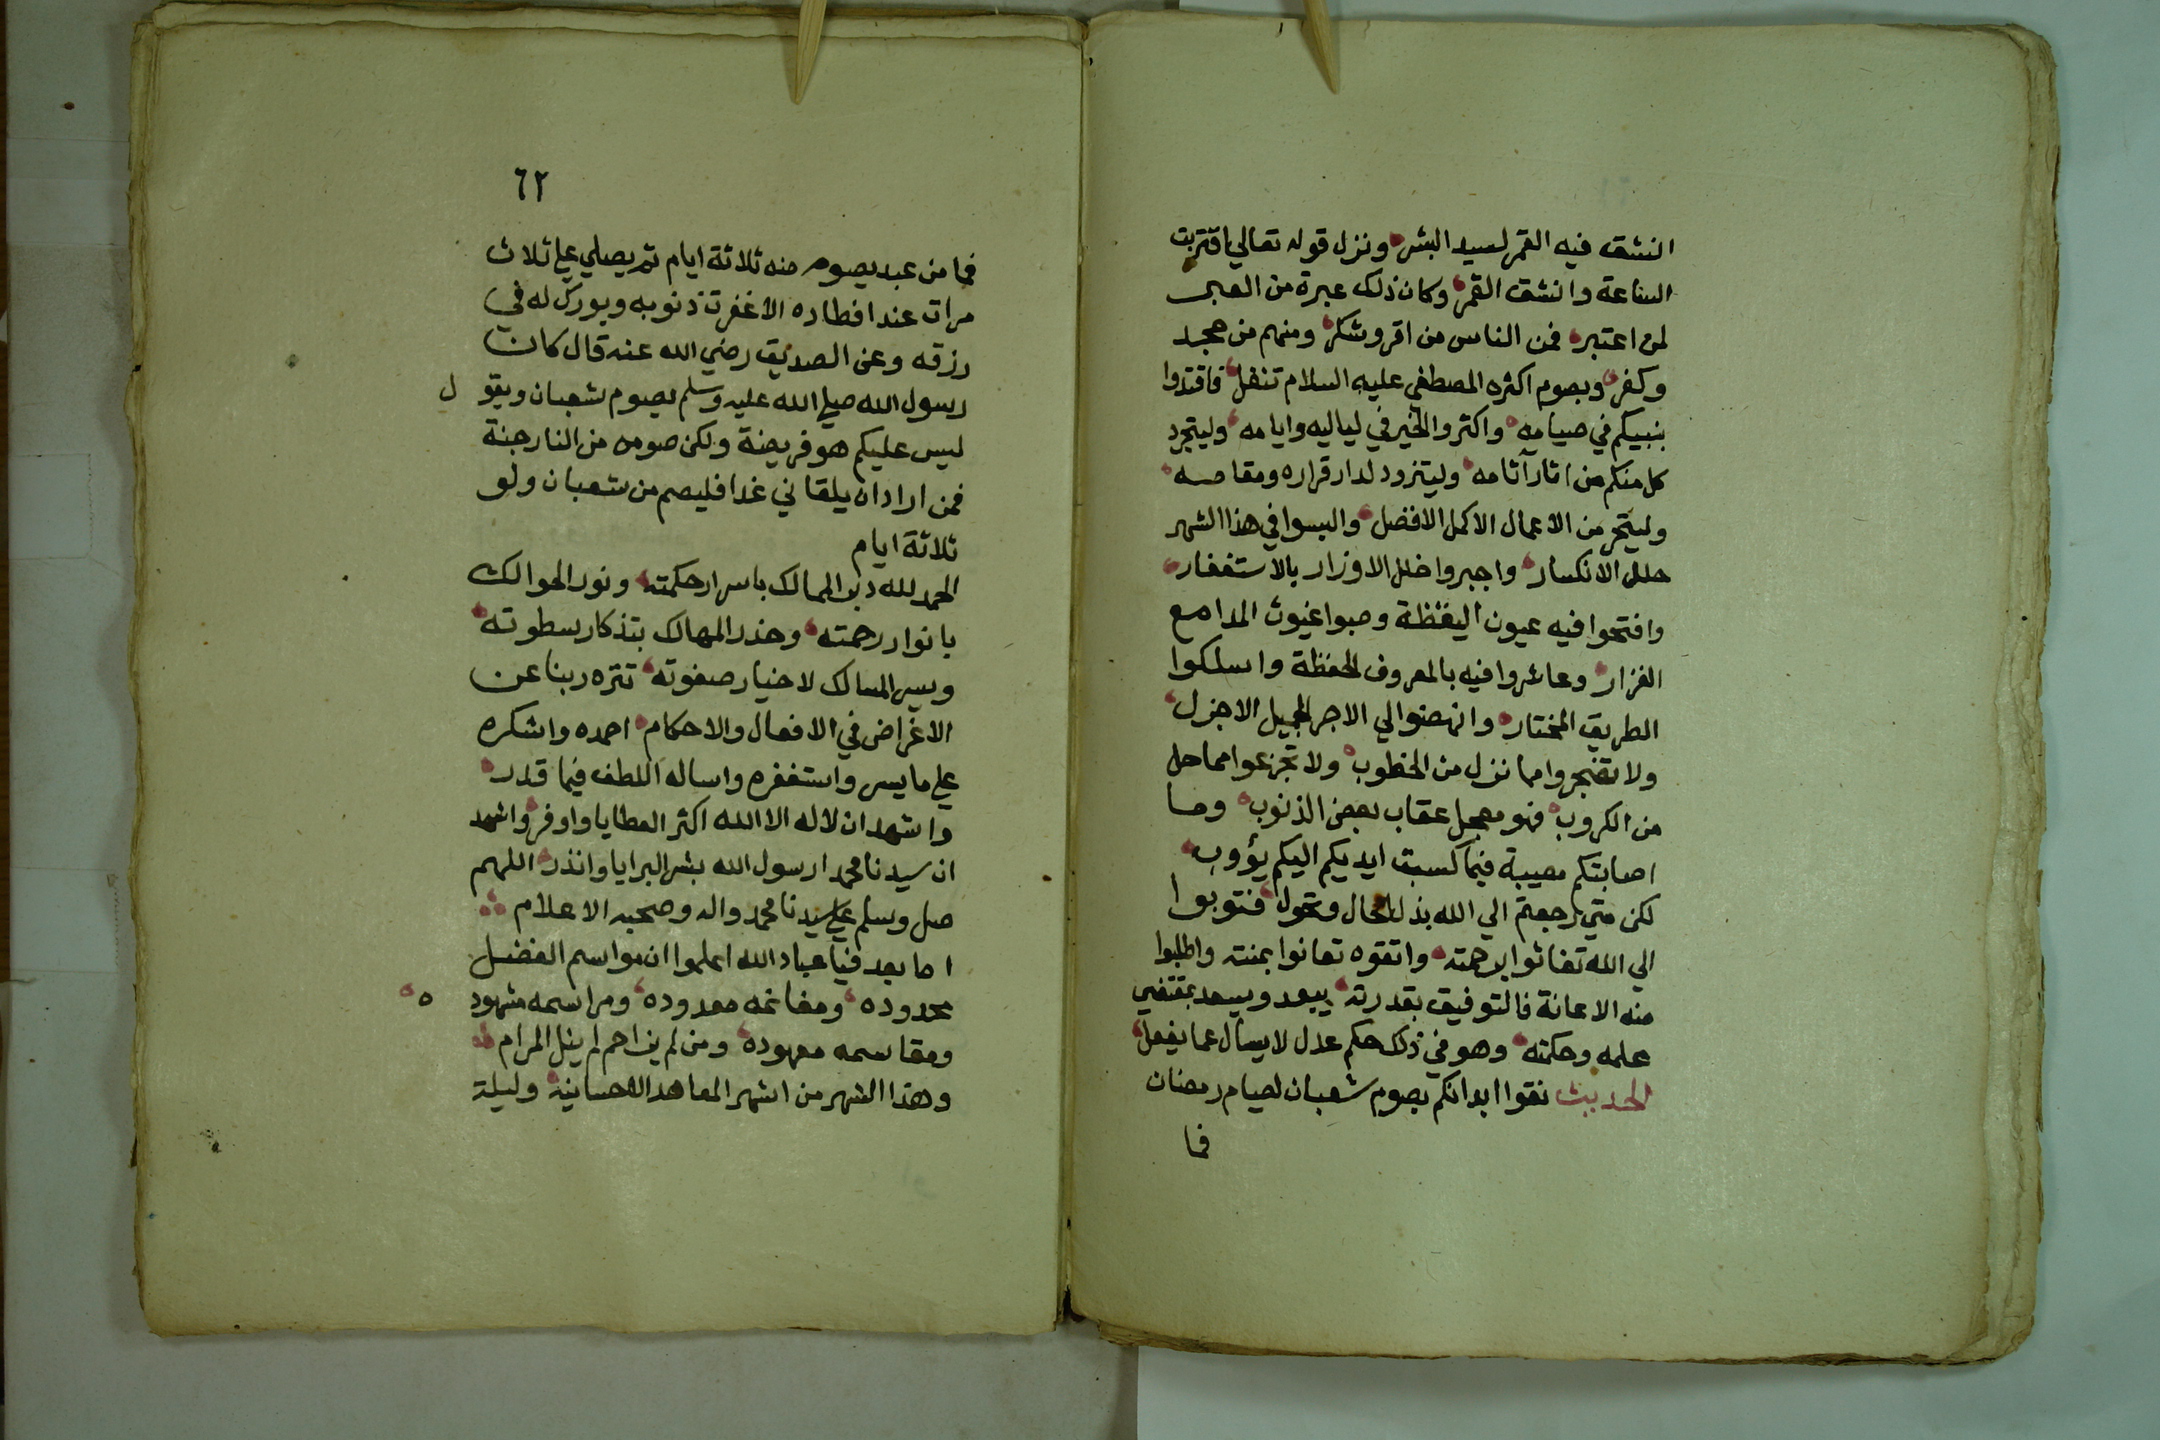 انشق فيه القمر لسيد البشر ونزل قوله تعالي اقتربت
الساعة وانشق القمر وكان ذلك عبرة من العبر
لمن اعتبر فمن الناس من اقر وشكر ومنهم من جحد
وكفر وبصوم اكثره المصطفي عليه السلام تنفل فاقتدوا
بنبيكم في صيامه واكثروا الخير في لياليه وايامه وليتجرد
كل منكم من اثار آثامه وليتزود لدار قراره ومقامه
وليتحر من الاعمال الاكمل الافضل والبسوا في هذا الشهر
حلل الانكسار واجبروا خلل الاوزار بالاستغفار
وافتحوا فيه عيون اليقظة وصبوا غيوث المدامع
الغزار وعاشروا فيه بالمعروف الحفظة واسلكوا
الطريق المختار وانهضوا الي الاجر الجميل الاجزل
ولا تضجروا مما نزل من الخطوب ولا تجزعوا مما حل
من الكروب فهو معجل عقاب بعض الذنوب وما
اصابتكم مصيبة فبما كسبت ايديكم اليكم يؤوب
لكن متي رجعتم الي الله بذل الحال وتحول فتوبوا
الي الله تغاثوا برحمته واتقوه تعانوا بمنته واطلبوا
منه الاعانة فالتوفيق بقدرته يبعد ويسعد بمقتضي
علمه وحكمته وهو في ذلك حكم عدل لا يسأل عما يفعل
الحديث نقوا ابدانكم بصوم شعبان لصيام رمضان
فما
٦٢
فما من عبد يصوم منه ثلاثة ايام ثم يصلي علي ثلاث
مرات عند افطاره الا غفرت ذنوبه وبورك له في
رزقه وعن الصديق رضي الله عنه قال كان
رسول الله صلي الله عليه وسلم يصوم شعبان ويقو ل
ليس عليكم هو فريضة ولكن صومه من النار جنة
فمن اراد ان يلقاني غدا فليصم من شعبان ولو
ثلاثة ايام
الحمد لله رب الممالك باسرار حكمته ونور الحوالك
بانوار رحمته وحذر المهالك بتذكار سطوته
ويسر المسالك لاختيار صفوته تنزه ربنا عن
الاغراض في الافعال والاحكام احمده واشكره
علي ما يسر واستغفره واساله اللطف فيما قدر
واشهد ان لا اله الا الله اكثر العطايا واوفر واشهد
ان سيدنا محمدا رسول الله بشر البرايا وانذر اللهم
صل وسلم علي سيدنا محمد واله وصحبه الاعلام
اما بعد فيا عباد الله اعلموا ان مواسم الفضل
محدوده ومغانمه معدوده ومراسمه مشهود ه
ومقاسمه معهوده ومن لم يزاحم لم ينل المرام
وهذا الشهر من اشهر المعاهد الاحسانية وليلة